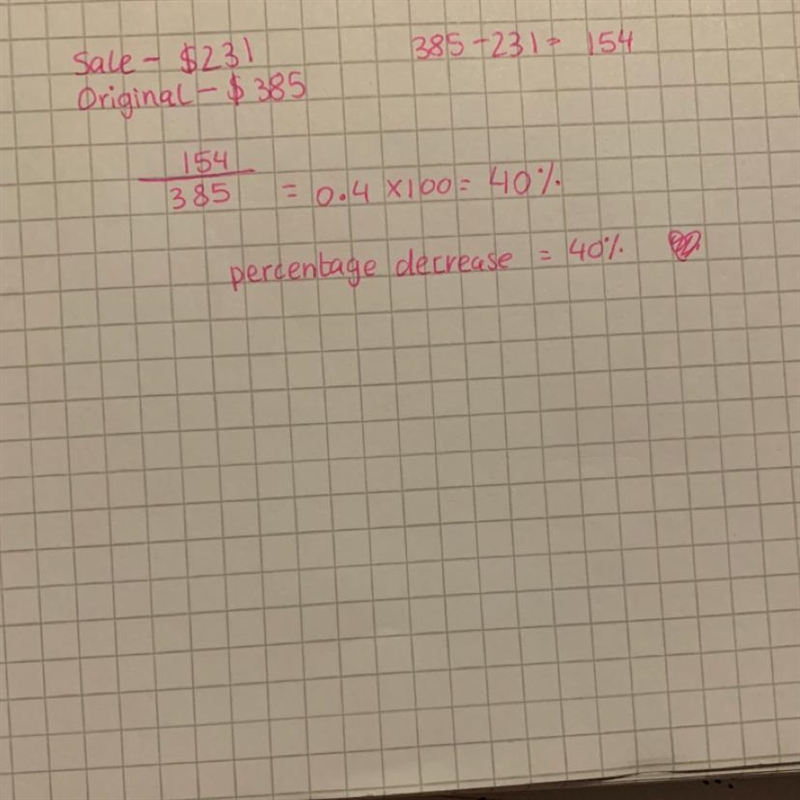 Sale - $231
Original - $385
385 - 231 = 154
154
385
= 0.4 × 100 = 40%
percentage decrease = 40%